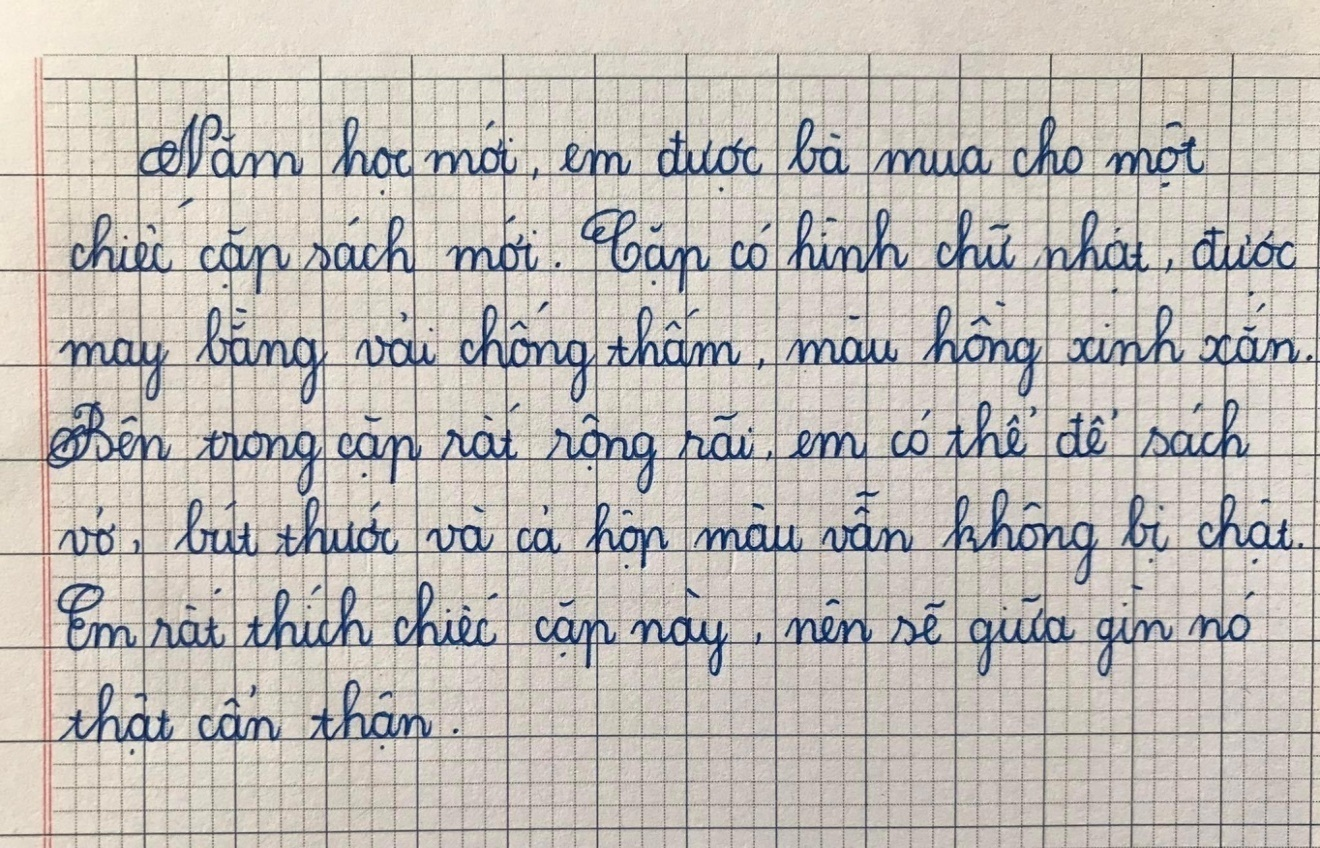 Năm học mới, em được bà mua cho một
chiếc cặp sách mới. Cặp có hình chữ nhật, được
may bằng vải chống thấm, màu hồng xinh xắn.
Bên trong cặp rất rộng rãi, em có thể để sách
vở, bút thước và cả hộp màu vẫn không bị chật.
Em rất thích chiếc cặp này, nên sẽ giữa gìn nó
thật cẩn thận.